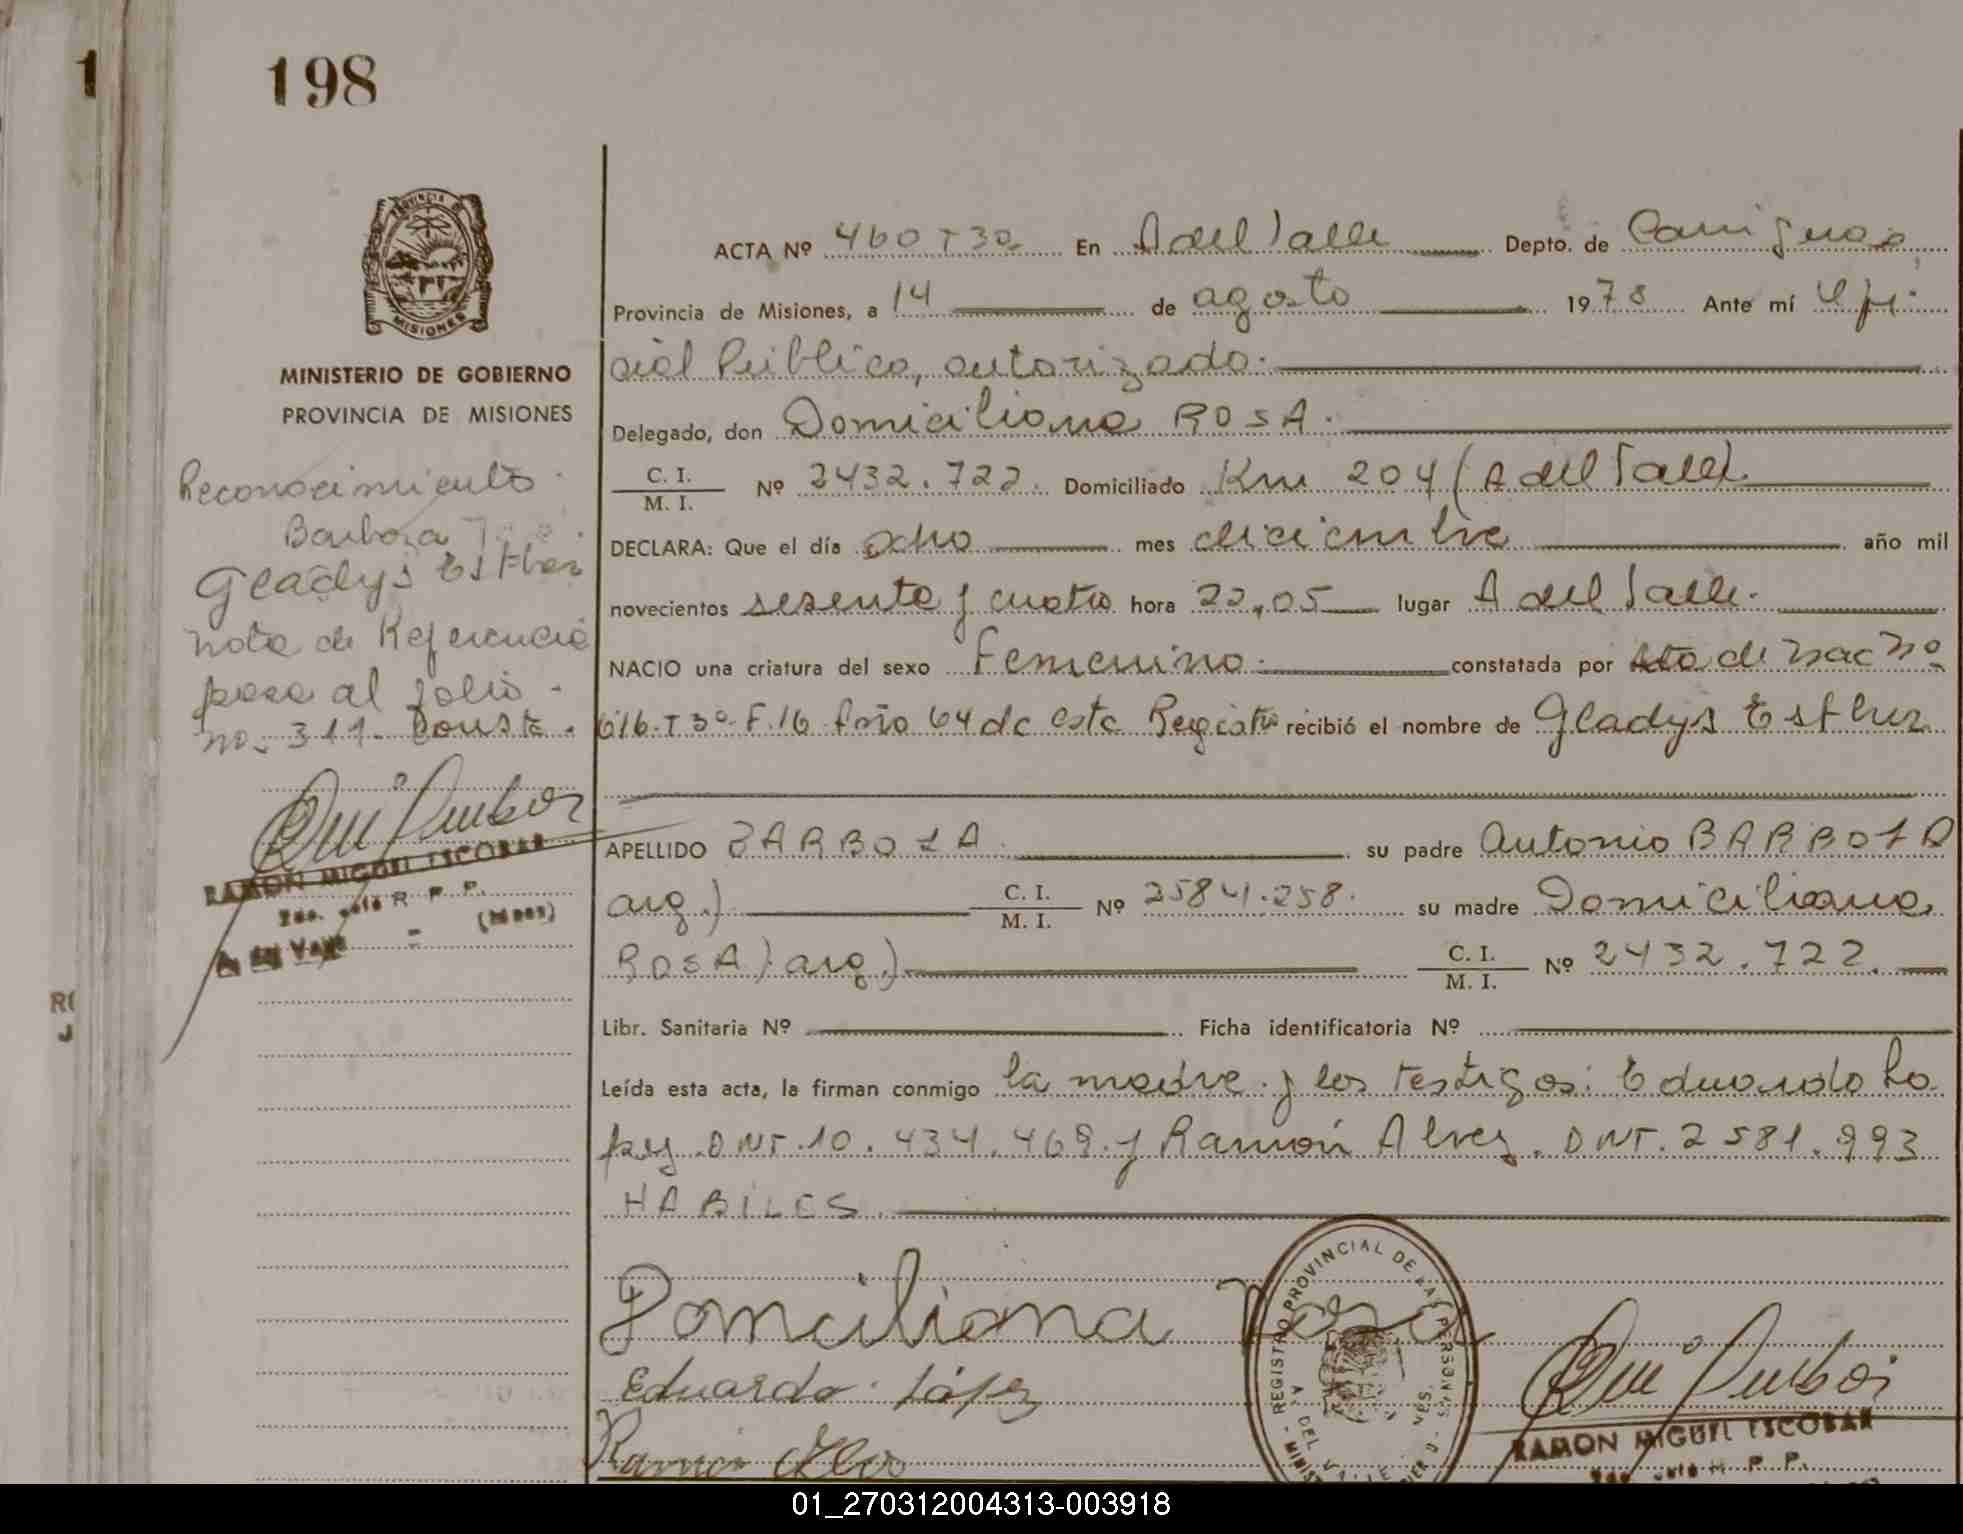 1
198
PROVINCIA DE
MISIONES
MINISTERIO DE GOBIERNO
PROVINCIA DE MISIONES
Reconocimiento
Barboza
Gladys Esther
nota de Referencia
pasa al folio -
no. 311. Conste.
RAMON MIGUEL ESCOBAR
R P P.
A. del Valle - (Mnes)
ACTA Nº 460 T 3º En A del Valle Depto. de Cainguas
Provincia de Misiones, a 14 de agosto 1978 Ante mí Ofi
cial Público, autorizado.
Delegado, don Domiciliana ROSA.
C. I.
M. I. Nº 2432.722. Domiciliado Km 204 (A del Valle)
DECLARA: Que el día ocho mes diciembre año mil
novecientos sesenta y cuatro hora 22,05 lugar A del Valle.
NACIO una criatura del sexo Femenino. constatada por Acta de Nac Nº
616-T 3º-F.16 Año 64 de este Registro recibió el nombre de Gladys Esther
APELLIDO BARBOZA su padre Antonio BARBOZA
arg.) C. I.
M. I. Nº 2584.258. su madre Domiciliana
ROSA) arg.) C. I.
M. I. Nº 2432.722.
Libr. Sanitaria Nº Ficha identificatoria Nº
Leída esta acta, la firman conmigo la madre y los testigos: Eduardo Lo
pez DNI. 10.434.469. y Ramón Alvez. DNI. 2581.993
HABILES.
Domciliana Rosa
Eduardo López
Ramón
REGISTRO PROVINCIAL DE LAS PERSONAS
A DEL VALLE
RAMON MIGUEL ESCOBAR
P. P.
01_270312004313-003918